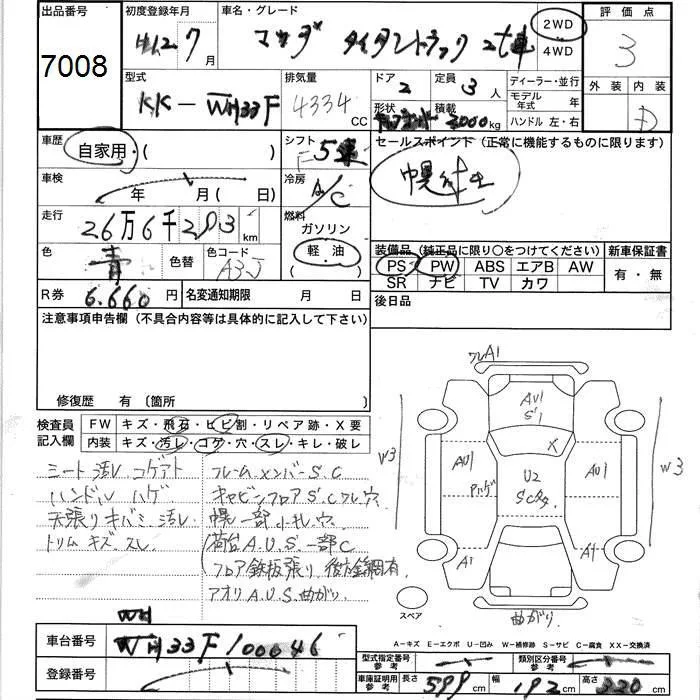 出品番号
7008
初度登録年月
H12 7月
車名・グレード
マツダ タイタントラック 2t車
2WD
4WD
評価点
3
外装 内装
D
型式
KK-WH33F
排気量
4334 CC
ドア
2
定員
3人
形状
積載
3000kg
ディーラー・並行
モデル年式 年
ハンドル 左・右
車歴
自家用・( )
シフト
F5
セールスポイント(正常に機能するものに限ります)
車検
年 月( 日)
冷房
A/C
走行
26万6千293km
燃料
ガソリン
軽・油
( )
色
青
色替
色コード
A3J
装備品(純正品に限り○をつけてください)
PS PW ABS エアB AW
SR ナビ TV カワ
新車保証書
有・無
R券
6.660円
名変通知期限 月 日
後日品
注意事項申告欄(不具合内容等は具体的に記入して下さい)
修復歴 有 〔箇所 〕
検査員記入欄
FW キズ・飛石・ヒビ割・リペア跡・X要
内装 キズ・汚レ・コゲ・穴・スレ・キレ・破レ
シート汚レ コゲアト
ハンドル ハゲ
天張りキバミ 汚レ
トリム キズ スレ
フレームメンバーS.C
キャビンフロアS.C フレ穴
幌一部小キレ穴
荷台A.U.S.一部C
フロア鉄板張り
アオリA.U.S.曲がり
A1
AU1
S1
X
W3
AU1
U2
AU1
W3
A1
A1
スペア
曲がり
A-キズ E-エクボ U-凹み W-補修跡 S-サビ C-腐食 XX-交換済
車台番号
WH
WH33F100046
登録番号
型式指定番号
参考
類別区分番号
参考
車庫証明用
参考
長さ 599cm 幅 192cm 高さ 320cm